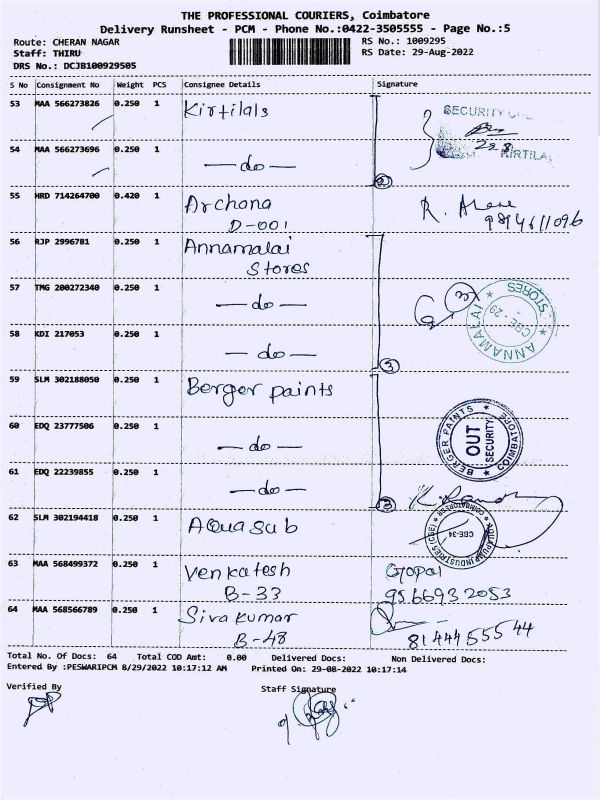 THE PROFESSIONAL COURIERS, Coimbatore
Delivery Runsheet - PCM - Phone No.:0422-3505555 - Page No.:5
Route: CHERAN NAGAR RS No.: 1009295
Staff: THIRU RS Date: 29-Aug-2022
DRS No.: DCJB100929505
S No Consignment No Weight PCS Consignee Details Signature
53 MAA 566273826 0.250 1 Kirtilals
SECURITY
KIRTILAL
54 MAA 566273696 0.250 1 — do —
2
55 HRD 714264700 0.420 1 Archana
D-001
R.
56 RJP 2996781 0.250 1 Annamalai
Stores
57 TMG 200272340 0.250 1 — do —
ANNAMALAI STORES
CBE - 29
58 KDI 217053 0.250 1 — do —
3
59 SLM 302188050 0.250 1 Berger paints
60 EDQ 23777506 0.250 1 — do —
BERGER PAINTS COIMBATORE
OUT
SECURITY
61 EDQ 22239855 0.250 1 — do —
62 SLM 302194418 0.250 1 Aquasub
CBE-34
63 MAA 568499372 0.250 1 Venkatesh Gopal
B-33 9566932053
64 MAA 568566789 0.250 1 Sivakumar
B-48 8144455544
Total No. Of Docs: 64 Total COD Amt: 0.00 Delivered Docs: Non Delivered Docs:
Entered By :PESWARIPCM 8/29/2022 10:17:12 AM Printed On: 29-08-2022 10:17:14
Verified By Staff Signature